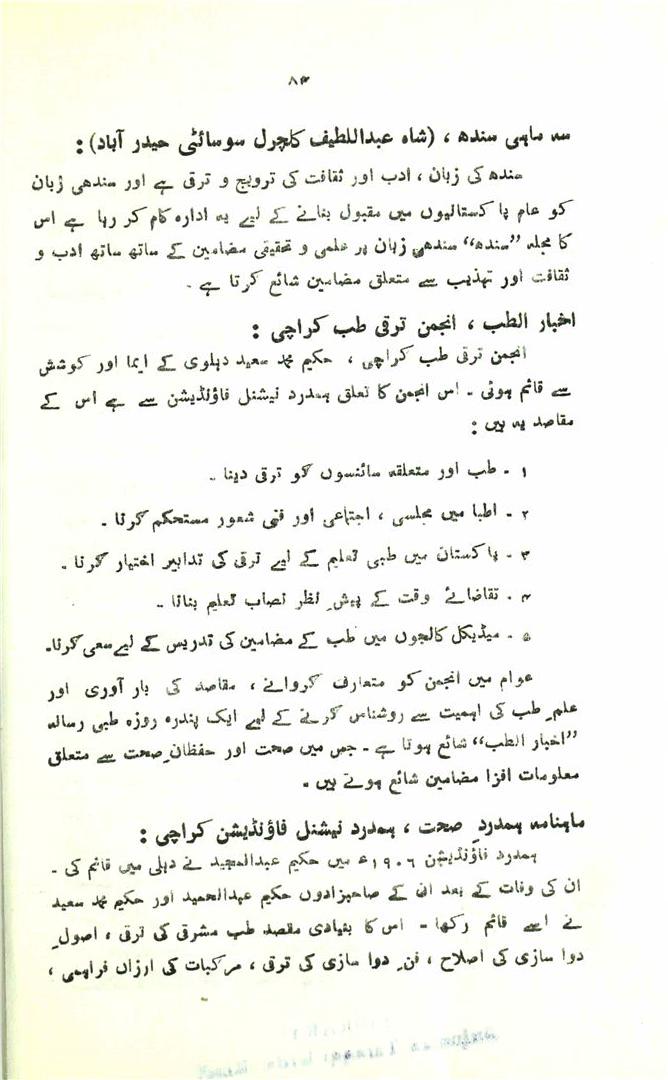 ۸۴
سہ ماہی سندھ ، (شاہ عبداللطیف کلچرل سوسائٹی حیدر آباد) :
سندھ کی زبان ، ادب اور ثقافت کی ترویج و ترقی ہے اور سندھی زبان
کو عام پاکستانیوں میں مقبول بنانے کے لیے یہ ادارہ کام کر رہا ہے اس
کا مجلہ ”سندھ“ سندھی زبان پر علمی و تحقیقی مضامین کے ساتھ ساتھ ادب و
ثقافت اور تہذیب سے متعلق مضامین شائع کرتا ہے ۔
اخبار الطب ، انجمن ترقی طب کراچی :
انجمن ترقی طب کراچی ، حکیم محمد سعید دہلوی کے ایما اور کوشش
سے قائم ہوئی ۔ اس انجمن کا تعلق ہمدرد نیشنل فاؤنڈیشن سے ہے اس کے
مقاصد یہ ہیں :
۱ ۔ طب اور متعلقہ سائنسوں کو ترقی دینا ۔
۲ ۔ اطبا میں مجلسی ، اجتماعی اور فنی شعور مستحکم کرنا ۔
۳ ۔ پاکستان میں طبی تعلیم کے لیے ترقی کی تدابیر اختیار کرنا ۔
۴ ۔ تقاضائے وقت کے پیشِ نظر نصاب تعلیم بنانا ۔
۵ ۔ میڈیکل کالجوں میں طب کے مضامین کی تدریس کے لیے سعی کرنا۔
عوام میں انجمن کو متعارف کروانے ، مقاصد کی بار آوری اور
علمِ طب کی اہمیت سے روشناس کرنے کے لیے ایک پندرہ روزہ طبی رسالہ
”اخبار الطب“ شائع ہوتا ہے ۔ جس میں صحت اور حفظانِ صحت سے متعلق
معلومات افزا مضامین شائع ہوتے ہیں ۔
ماہنامہ ہمدردِ صحت ، ہمدرد نیشنل فاؤنڈیشن کراچی :
ہمدرد فاؤنڈیشن ۱۹۰۶ء میں حکیم عبدالمجید نے دہلی میں قائم کی ۔
ان کی وفات کے بعد ان کے صاحبزادوں حکیم عبدالحمید اور حکیم محمد سعید
نے اسے قائم رکھا ۔ اس کا بنیادی مقصد طب مشرقی کی ترقی ، اصولِ
دوا سازی کی اصلاح ، فنِ دوا سازی کی ترقی ، مرکبات کی ارزاں فراہمی ،